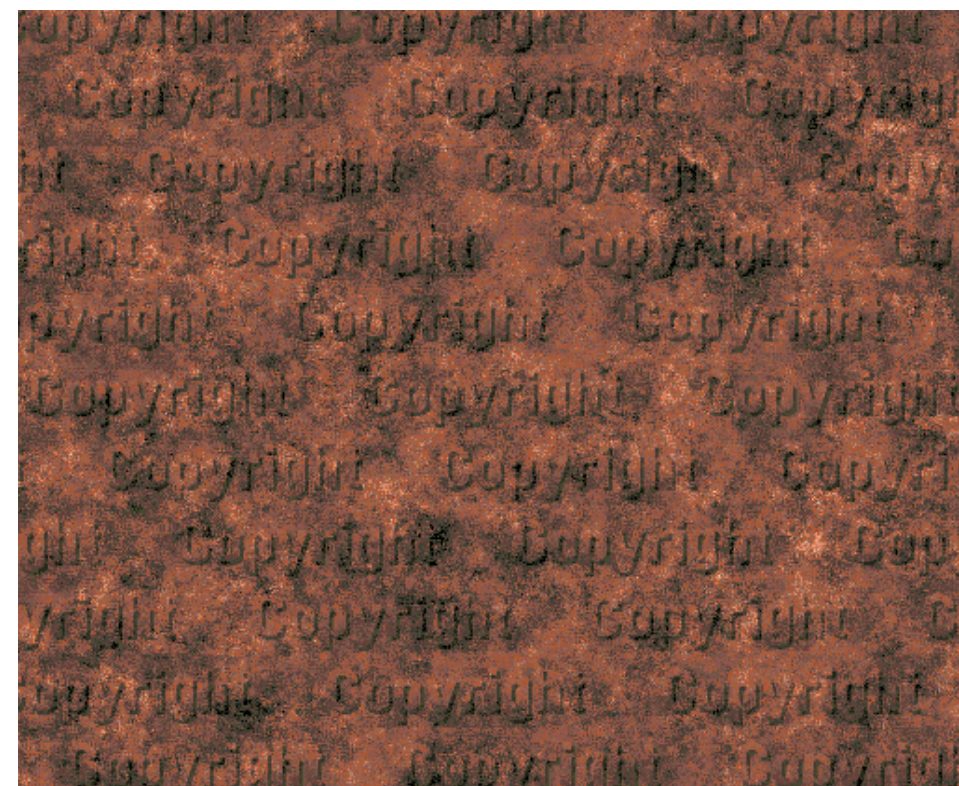 Copyright Copyright Copyright
Copyright Copyright Copyrigh
ht Copyright Copyright Copyr
right Copyright Copyright Co
pyright Copyright Copyright
Copyright Copyright Copyright
Copyright Copyright Copyri
ght Copyright Copyright Cop
yright Copyright Copyright C
Copyright Copyright Copyright
Copyright Copyright Copyrigh